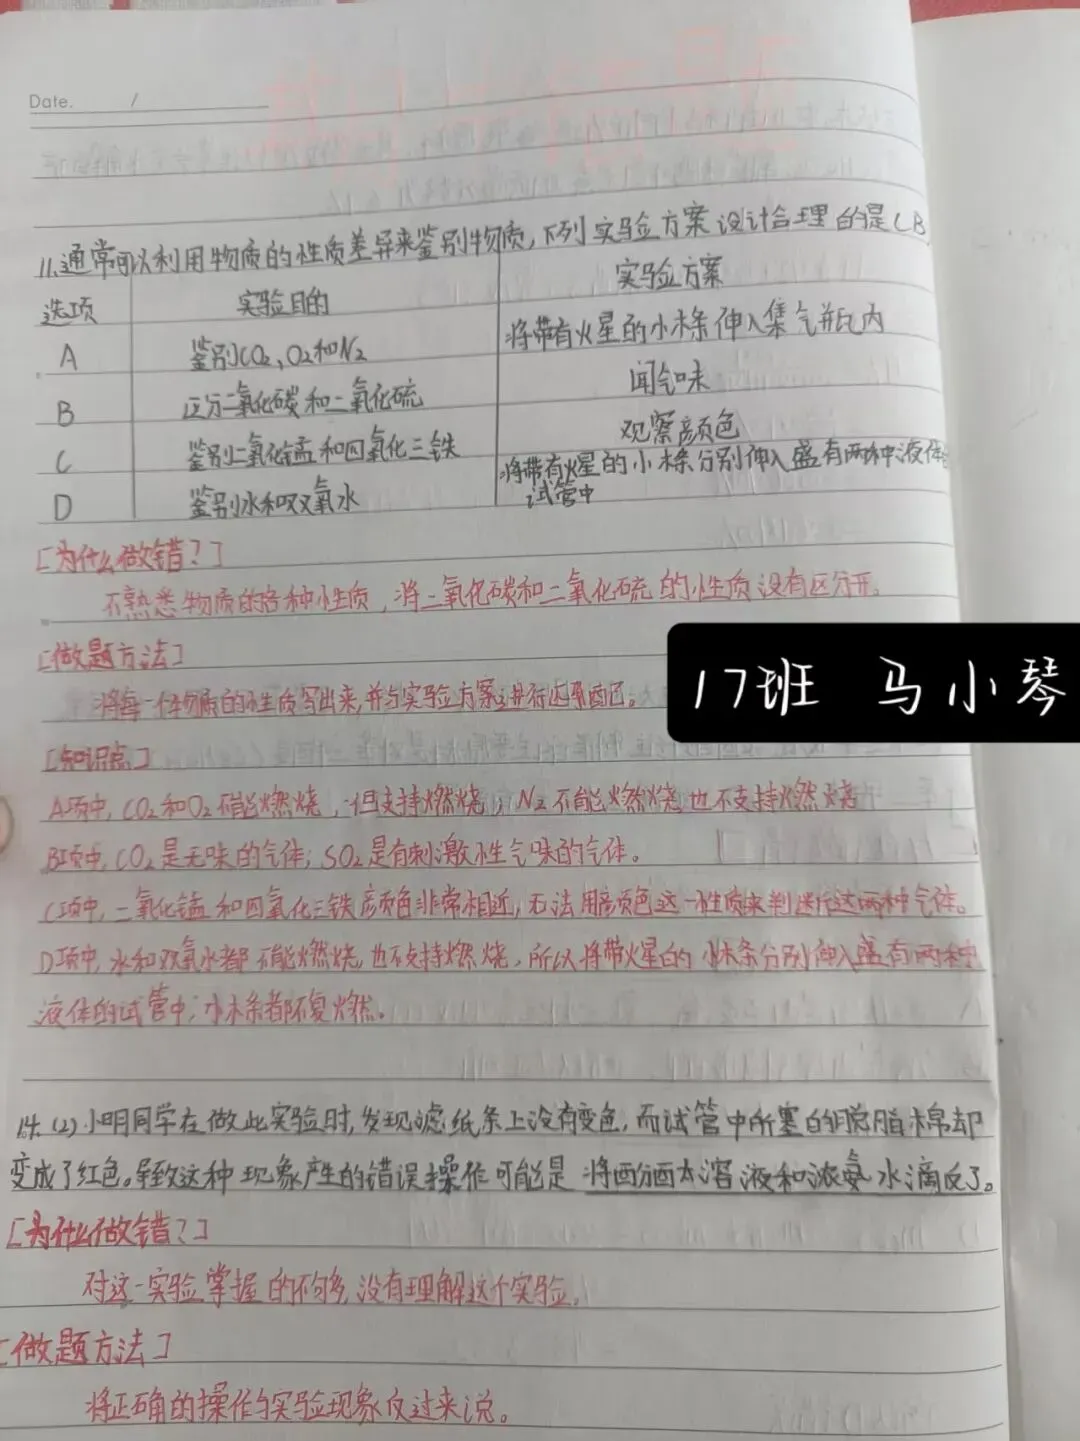 Date. /
11.通常可以利用物质的性质差异来鉴别物质,下列实验方案设计合理的是(B
选项 实验目的 实验方案
A 鉴别CO₂、O₂和N₂ 将带有火星的小木条伸入集气瓶内
B 区分二氧化碳和二氧化硫 闻气味
C 鉴别二氧化锰和四氧化三铁 观察颜色
D 鉴别水和双氧水 将带有火星的小木条分别伸入盛有两种液体的
试管中
[为什么做错?]
不熟悉物质的各种性质,将二氧化碳和二氧化硫的性质没有区分开。
[做题方法]
将每一件物质的性质写出来,并与实验方案进行匹配。
17班 马小琴
[知识点]
A项中,CO₂和O₂不能燃烧,但支持燃烧;N₂不能燃烧也不支持燃烧
B项中,CO₂是无味的气体;SO₂是有刺激性气味的气体。
C项中,二氧化锰和四氧化三铁颜色非常相近,无法用颜色这一性质来判断这两种气体。
D项中,水和双氧水都不能燃烧,也不支持燃烧,所以将带火星的小木条分别伸入盛有两种
液体的试管中;小木条都不复燃。
14.(2)小明同学在做此实验时,发现滤纸条上没有变色,而试管中所塞的脱脂棉却
变成了红色。导致这种现象产生的错误操作可能是 将酚酞溶液和浓氨水滴反了。
[为什么做错?]
对这一实验掌握的不够,没有理解这个实验。
[做题方法]
将正确的操作与实验现象反过来说。